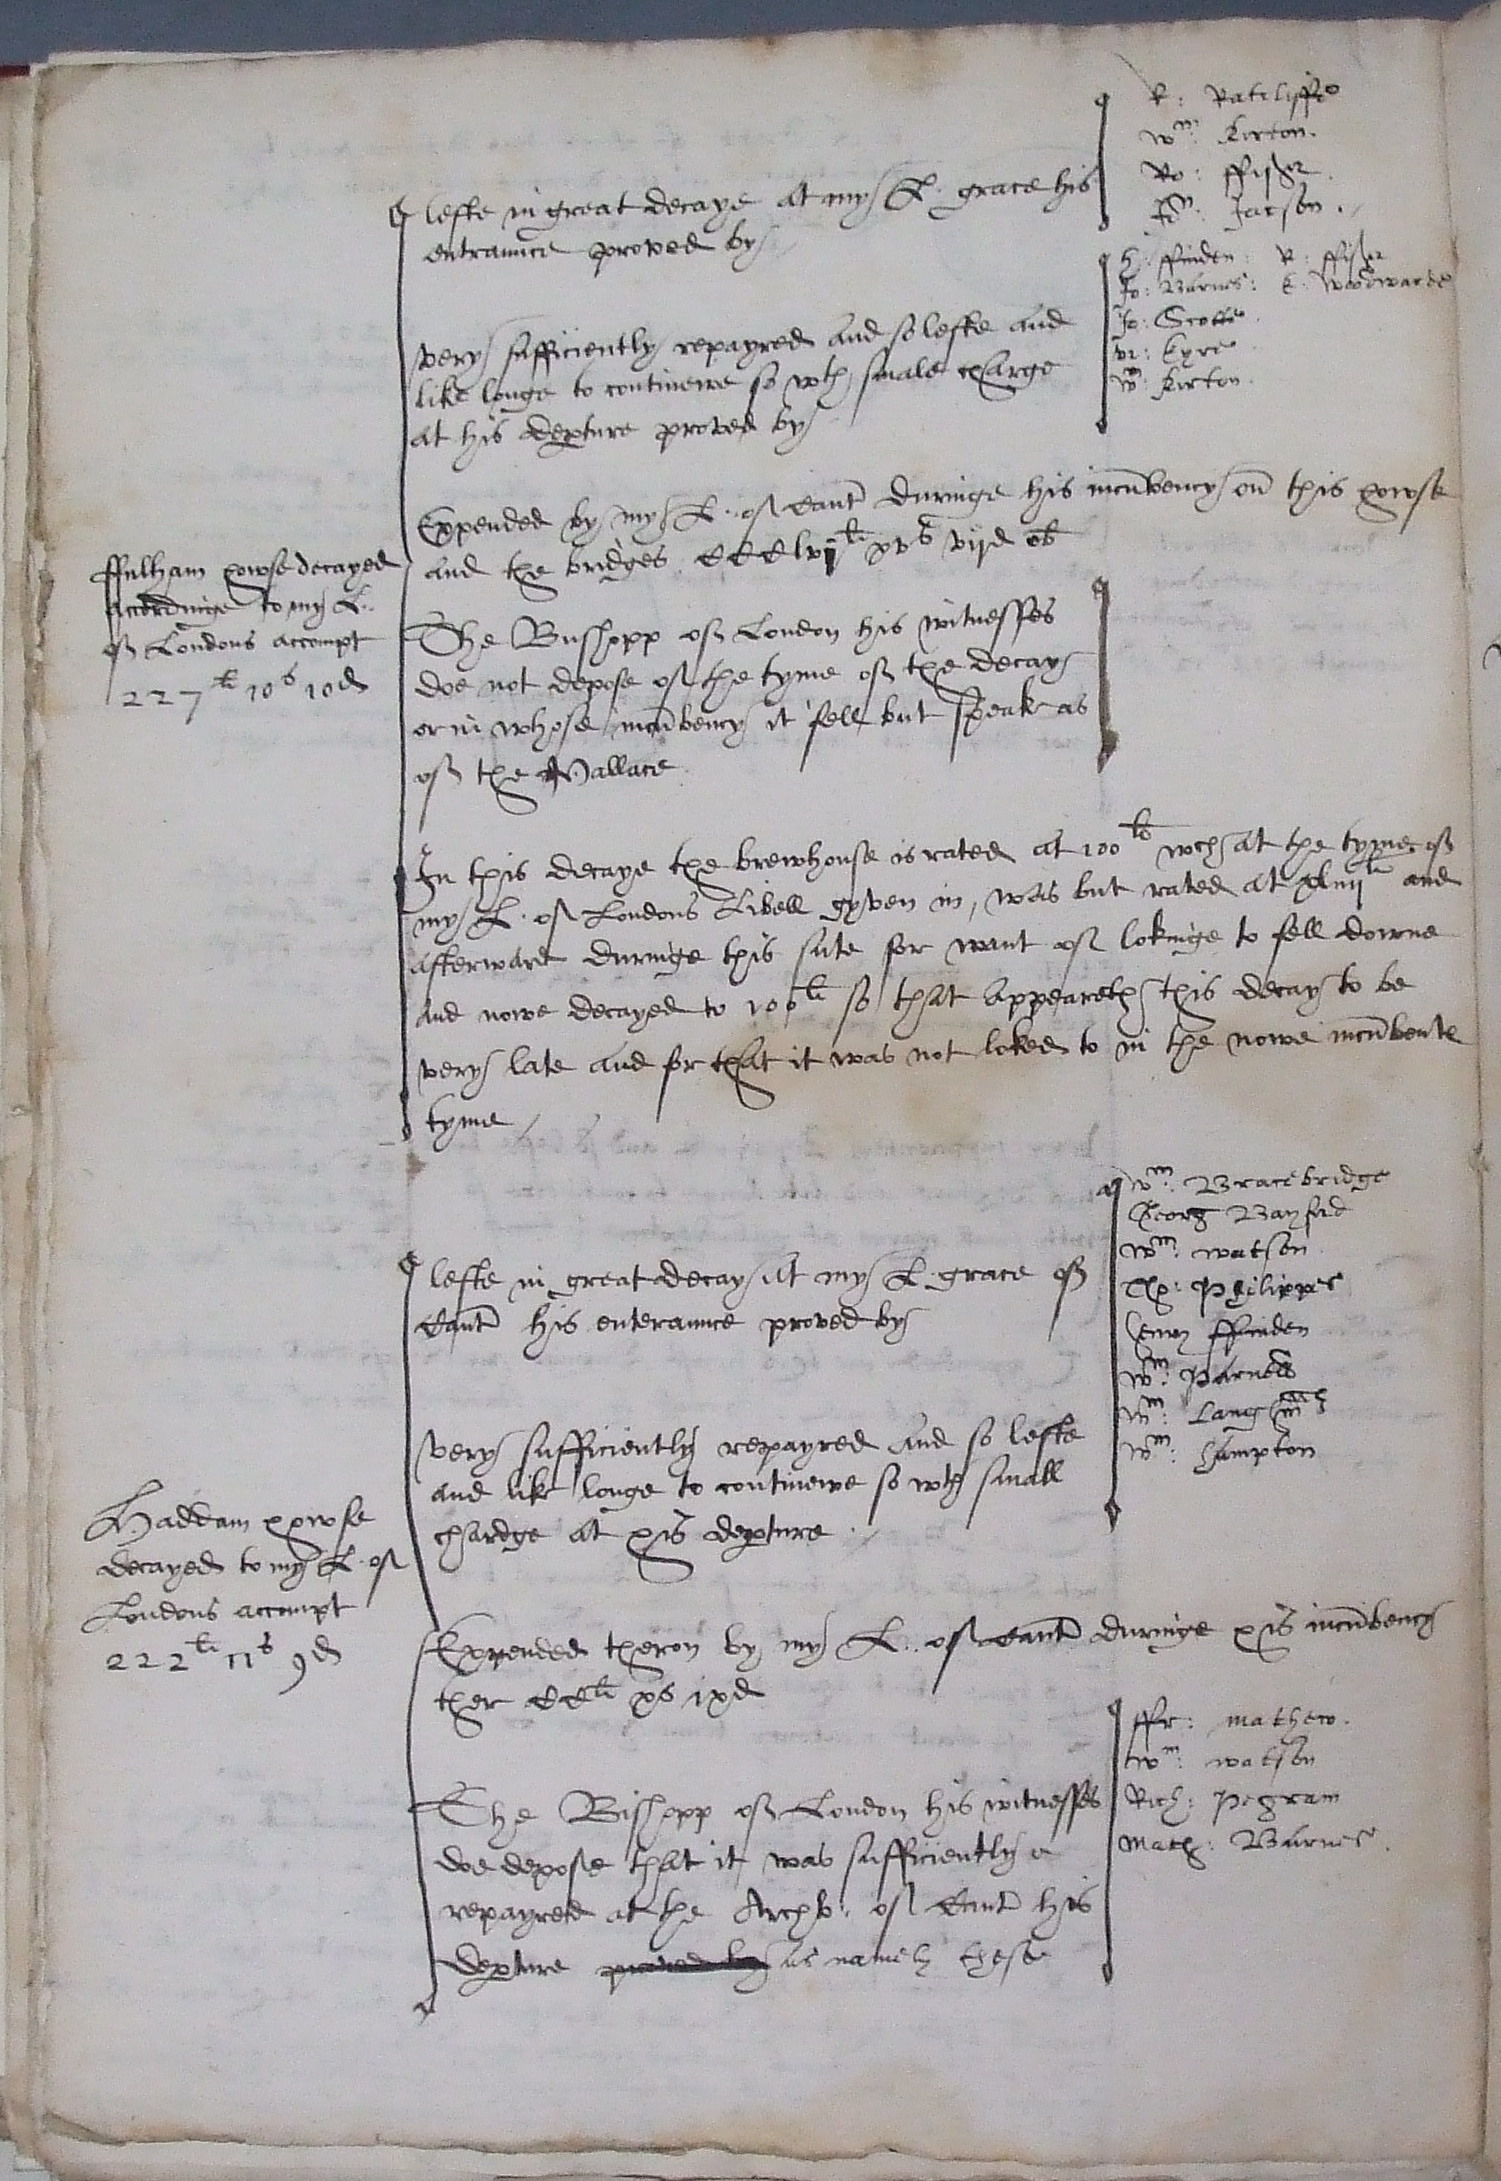 R: Ratcliffe
Wm: Kirton.
Ro: ffisher.
Jacson.
lefte in great decaye at my L. grace his
entraunce proved by
H: ffinden: R: ffisher
Jo: Barnes: E: Woodwarde
Jo: Scotte.
Eyre
Wm: Kirton.
very sufficiently repayred and so lefte and
like longe to continewe so wth smale charge
at his departure proved by
Expended by my L. of Cant duringe his incubency on this howse
and the bridges CCClvjli xvs vijd ob
ffulham howse decayed
accordinge to my L.
of Londons accompt
227li 10s 10d
The Busshopp of London his witnesses
doe not depose of the tyme of the decay
or in whose incubency it fell but speake as
of the Pallace.
In this decaye the brewhouse is rated at 100li wch at the tyme of
my L. of Londons Libell gyven in, was but rated at and
afterward duringe this sute for want of lokinge to fell downe
and nowe decayed to 100li so that appeareth this decay to be
very late and for that it was not loked to in the nowe incubente
tyme
Wm: Bracebridge
Georg
Wm: Watson
Philippes
Henry ffinden
Wm: Parnell
Wm: Lang
Wm: Hampton
lefte in great decay at my L. grace of
Cant his enteraunce proved by
very sufficiently repayred and so lefte
and like longe to continewe so wth small
chardge at his departure.
Haddam howse
decayed to my L. of
Londons accompt
222li 11s 9d
Expended theron by my L. of Cant duringe his incubency
ther CCli xs ixd
ffr: Mathew.
Wm: Watson
Rich: Pegram
Math: Barnes.
The Bishopp of London his witnesses
doe depose that it was sufficiently
repayred at the Archb: of Cant his
departure proved by as namely these